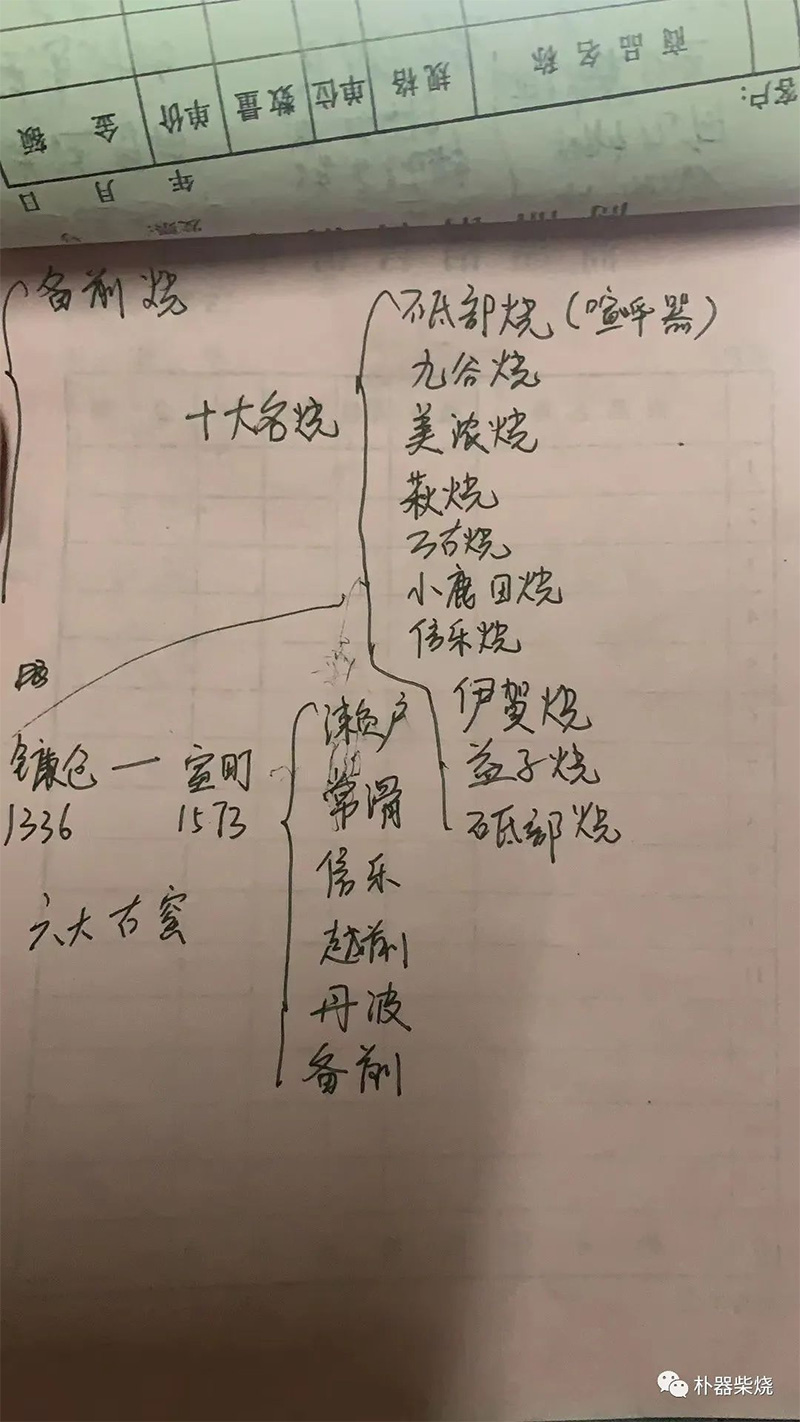 客户：
商品名称 规格 单位 数量 单价 金额
年 月 日
发票：
备前烧
十大名烧
砥部烧（喧呼器）
九谷烧
美浓烧
萩烧
万古烧
小鹿田烧
信乐烧
伊贺烧
益子烧
砥部烧
镰仓一室町
1336 1573
六大古窑
濑户
常滑
信乐
越前
丹波
备前
朴器柴烧